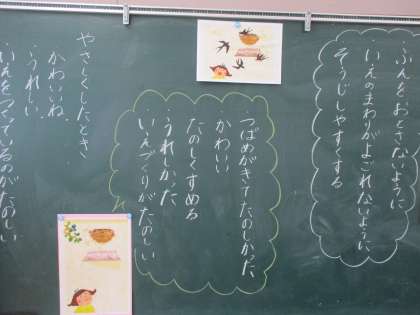 ふんをおとさないように
いえのまわりがよごれないように
そうじしやすくする
つばめがきてたのしかった
かわいい
たのしくすめる
うれしかった
いえづくりがたのしい
やさしくしたとき
かわいいね。
うれしい。
いえをつくっているのがたのしい